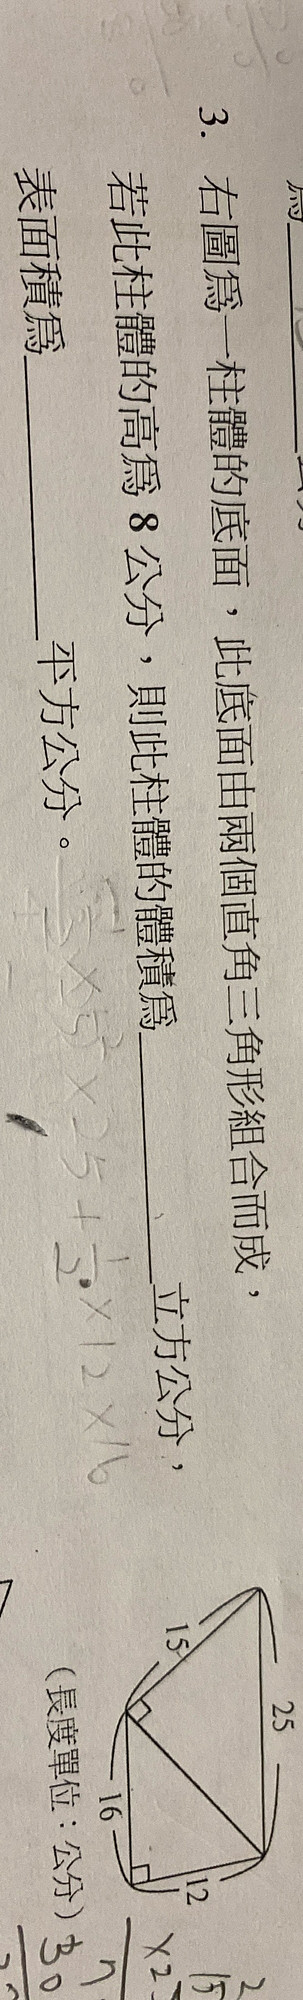 爲
3. 右圖爲一柱體的底面，此底面由兩個直角三角形組合而成，
若此柱體的高爲 8 公分，則此柱體的體積爲＿＿＿＿立方公分，
表面積爲＿＿＿＿平方公分。
25
15
12
16
(長度單位：公分)
×25+½×12×16
30